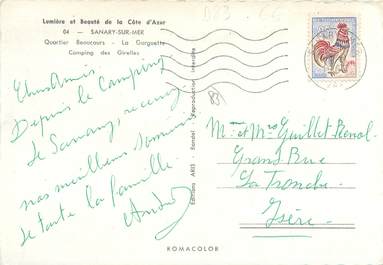 Lumière et Beauté de la Côte d'Azur
04 — SANARY-SUR-MER
Quartier Beaucours - La Gorguette
Camping des Girelles
Chers Amis
Depuis le Camping
de Sanary, recevez
nos meilleurs
de toute la famille.
André
Editions ARIS - Bandol - Reproduction interdite
83
Mme et Mr Guillet
Grand Rue
La Tronche
Isère
ROMACOLOR